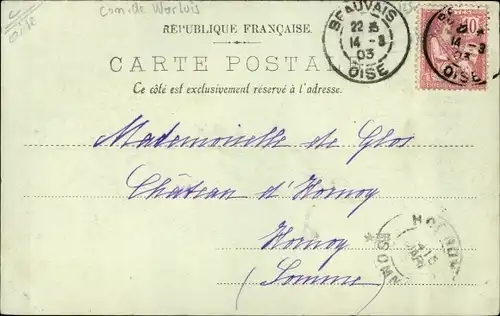 Oise
Com. de Warluis
RÉPUBLIQUE FRANÇAISE.
CARTE POSTA
Ce côté est exclusivement réservé à l'adresse.
BEAUVAIS
22
14 - 3
03
OISE
10
14 - 3
03
OISE
Mademoiselle de Glos
Château d'Hornoy
Hornoy
(Somme)
HORNOY
SOMME